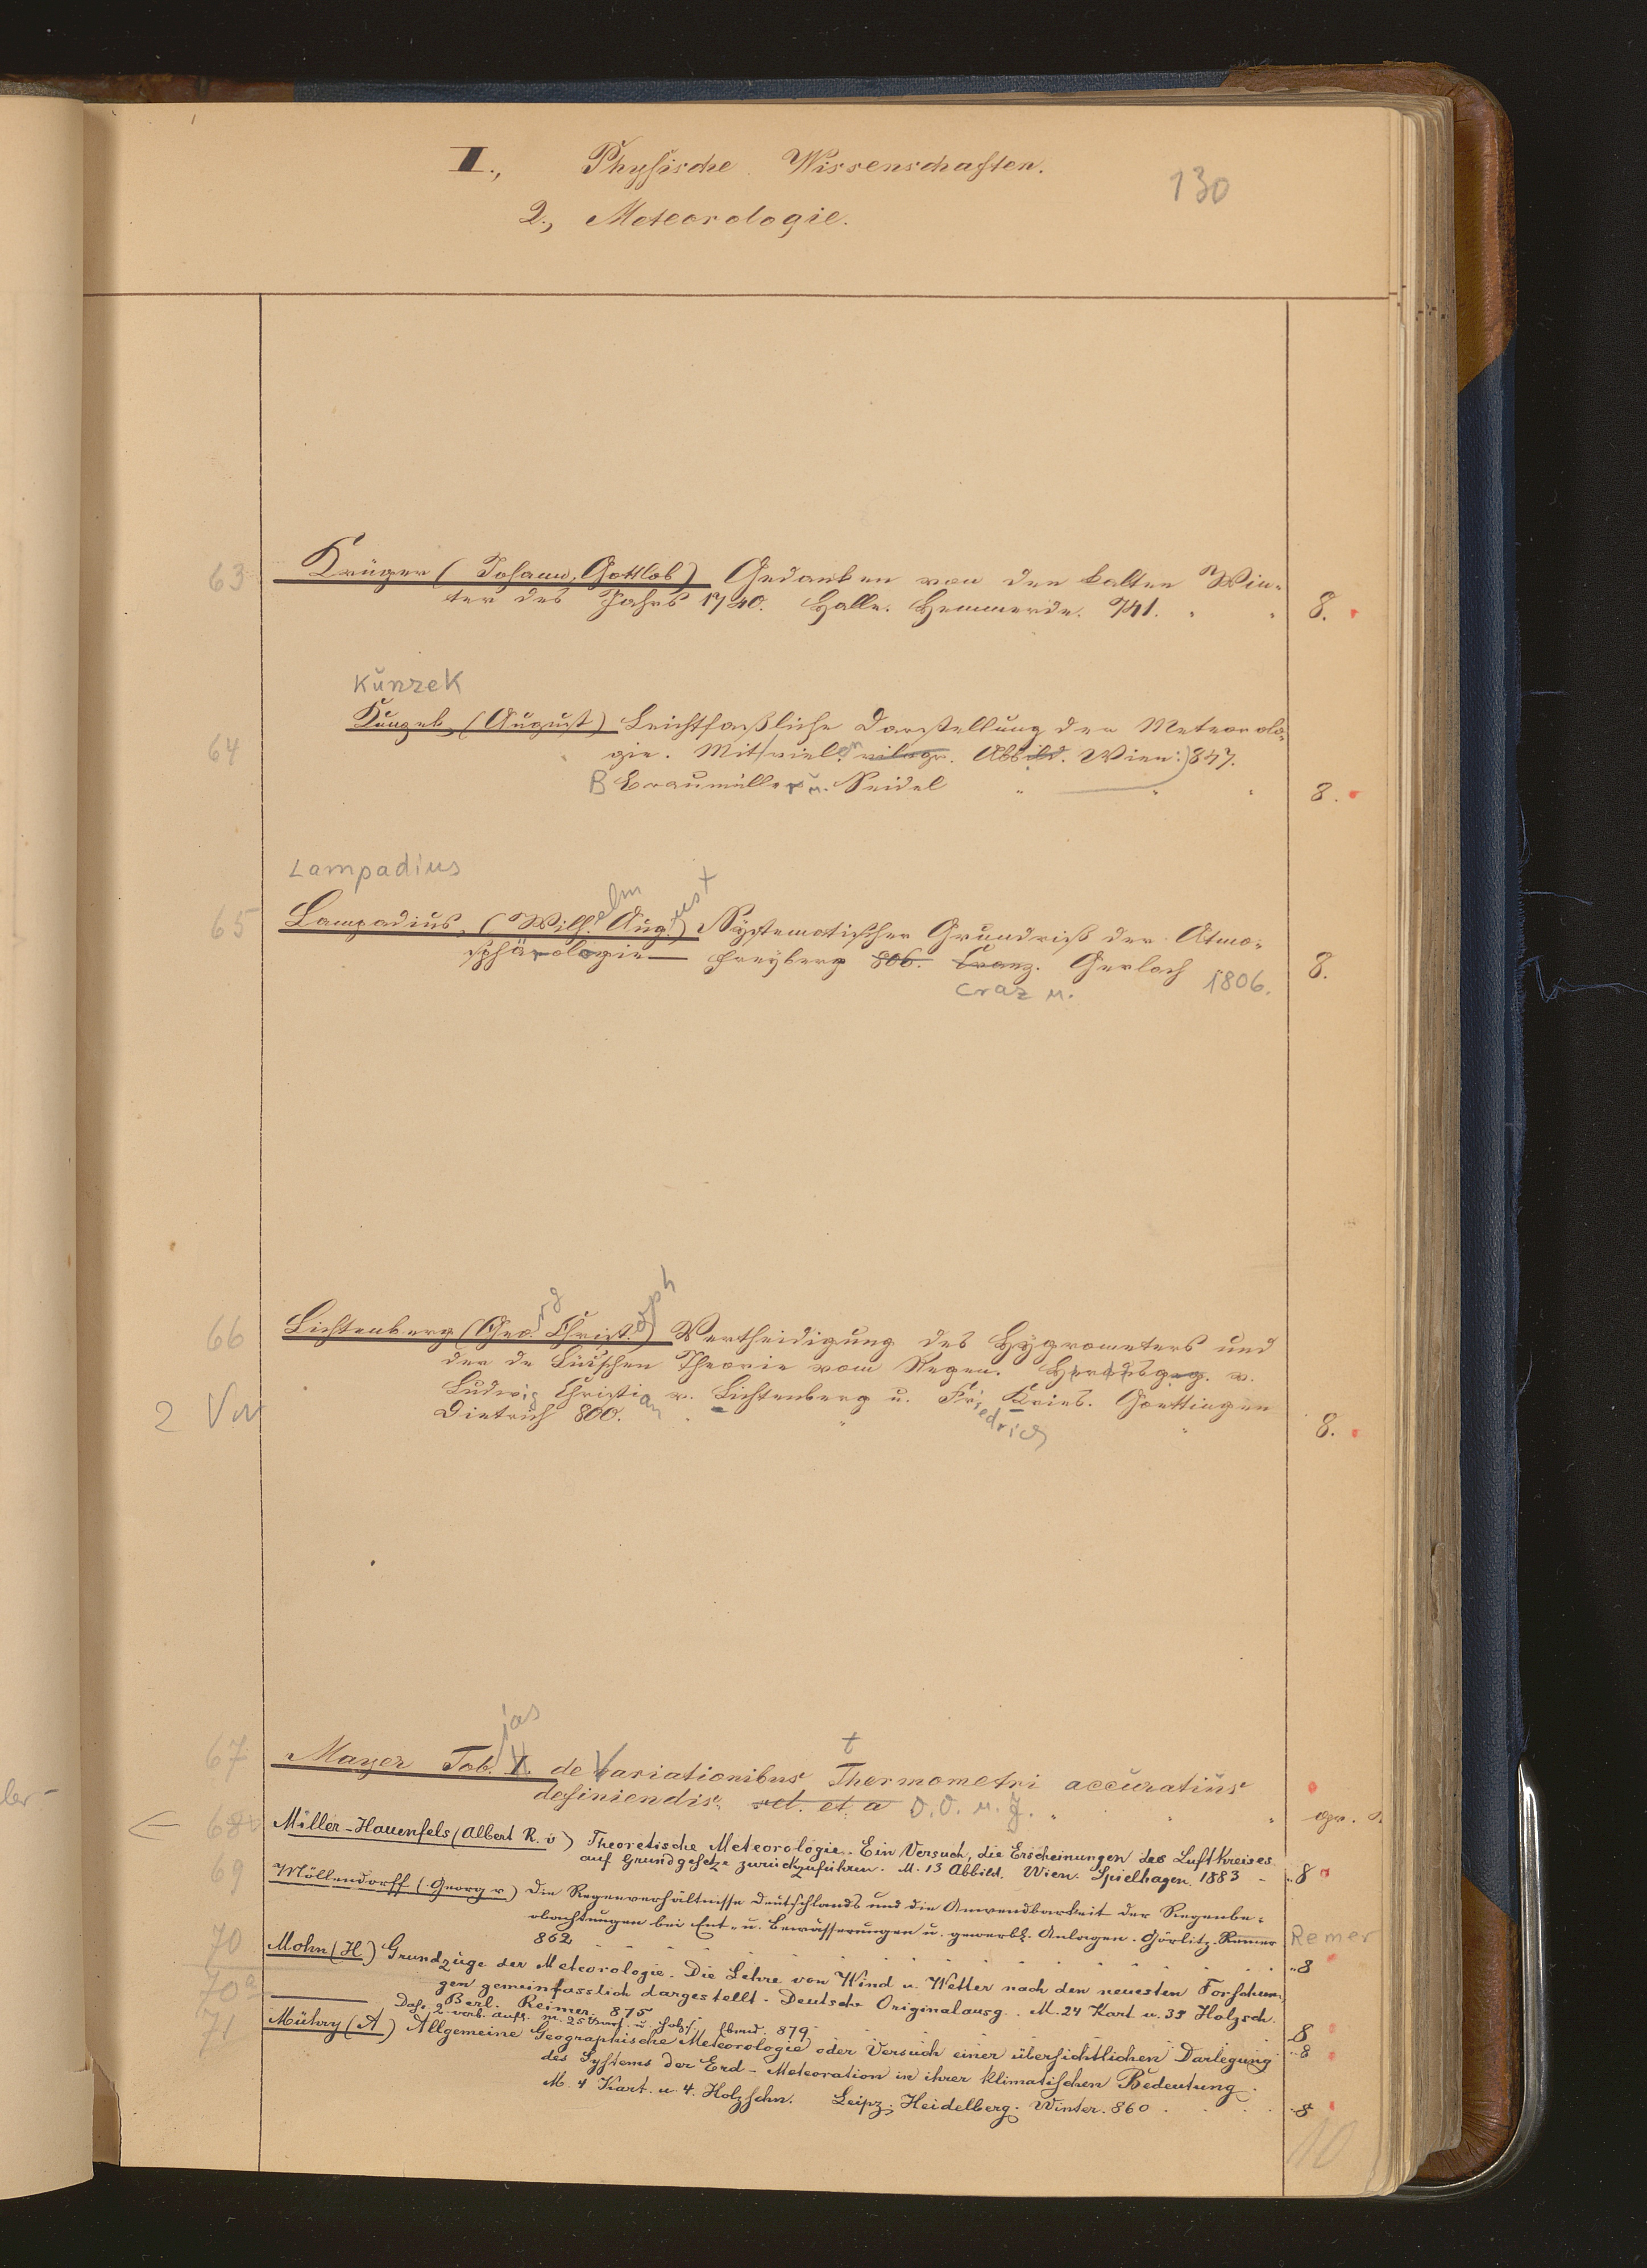 II., Physische Wissenschaften.
130
2., Meteorologie.
63 Krüger (Johann, Gottlob) Gedanken von den kalten Win-
ter des Jahrs 1740. Halle. Hemmerde. 741. 8.
Künzek
64 Kunzek, (August) Leichtfaßliche Darstellung der Meteorolo-
gie. Mit vielen Abbild. Wien: 847.
B Braumüller u. Seidel 8.
Lampadius
65 Lampadius, (Wilhelm August) Systematischer Grundriß der Atmo-
sphärologie Freyberg 806. Craz. Gerlach 1806. 8.
Craz u.
66 Lichtenberg (Georg Christoph) Vertheidigung des Hygrometers und
der de Lüc'schen Theorie vom Regen. Herausgeg. v.
2 Ludwig Christian v. Lichtenberg u. Friedrich Kries. Goettingen
Dietrich 800. 8.
67 Mayer Tob. jas de Variationibus Thermometri accuratius
definiendis. O. O. u. J. gr.
68 Miller-Hauenfels (Albert R. v) Theoretische Meteorologie. Ein Versuch, die Erscheinungen des Luftkreises
auf Grundgesetze zurückzuführen. M. 13 Abbild. Wien. Spielhagen. 1883 8
69 Möllendorff (Georg v) Die Regenverhältnisse Deutschlands und die Anwendbarkeit der Regenbe-
obachtungen bei Ent- u. Bewässerungen u. gewerbl. Anlagen. Görlitz. Remer Remer
862 8
70 Mohn (H) Grundzüge der Meteorologie. Die Lehre von Wind u. Wetter nach den neuesten Forschun-
gen gemeinfasslich dargestellt. Deutsche Originalausg. M. 24 Kart u. 35 Holzsch.
Berl. Reimer. 875 8
70a Dass. 2 verb. Aufl. m. 25 u. Holzs. Ebend. 879 8
71 Mühry (A) Allgemeine Geographische Meteorologie oder Versuch einer übersichtlichen Darlegung
des Systems der Erd-Meteoration in ihrer klimatischen Bedeutung.
M. 4 Kart. u. 4. Holzschn. Leipz. Heidelberg. Winter. 860 8
10